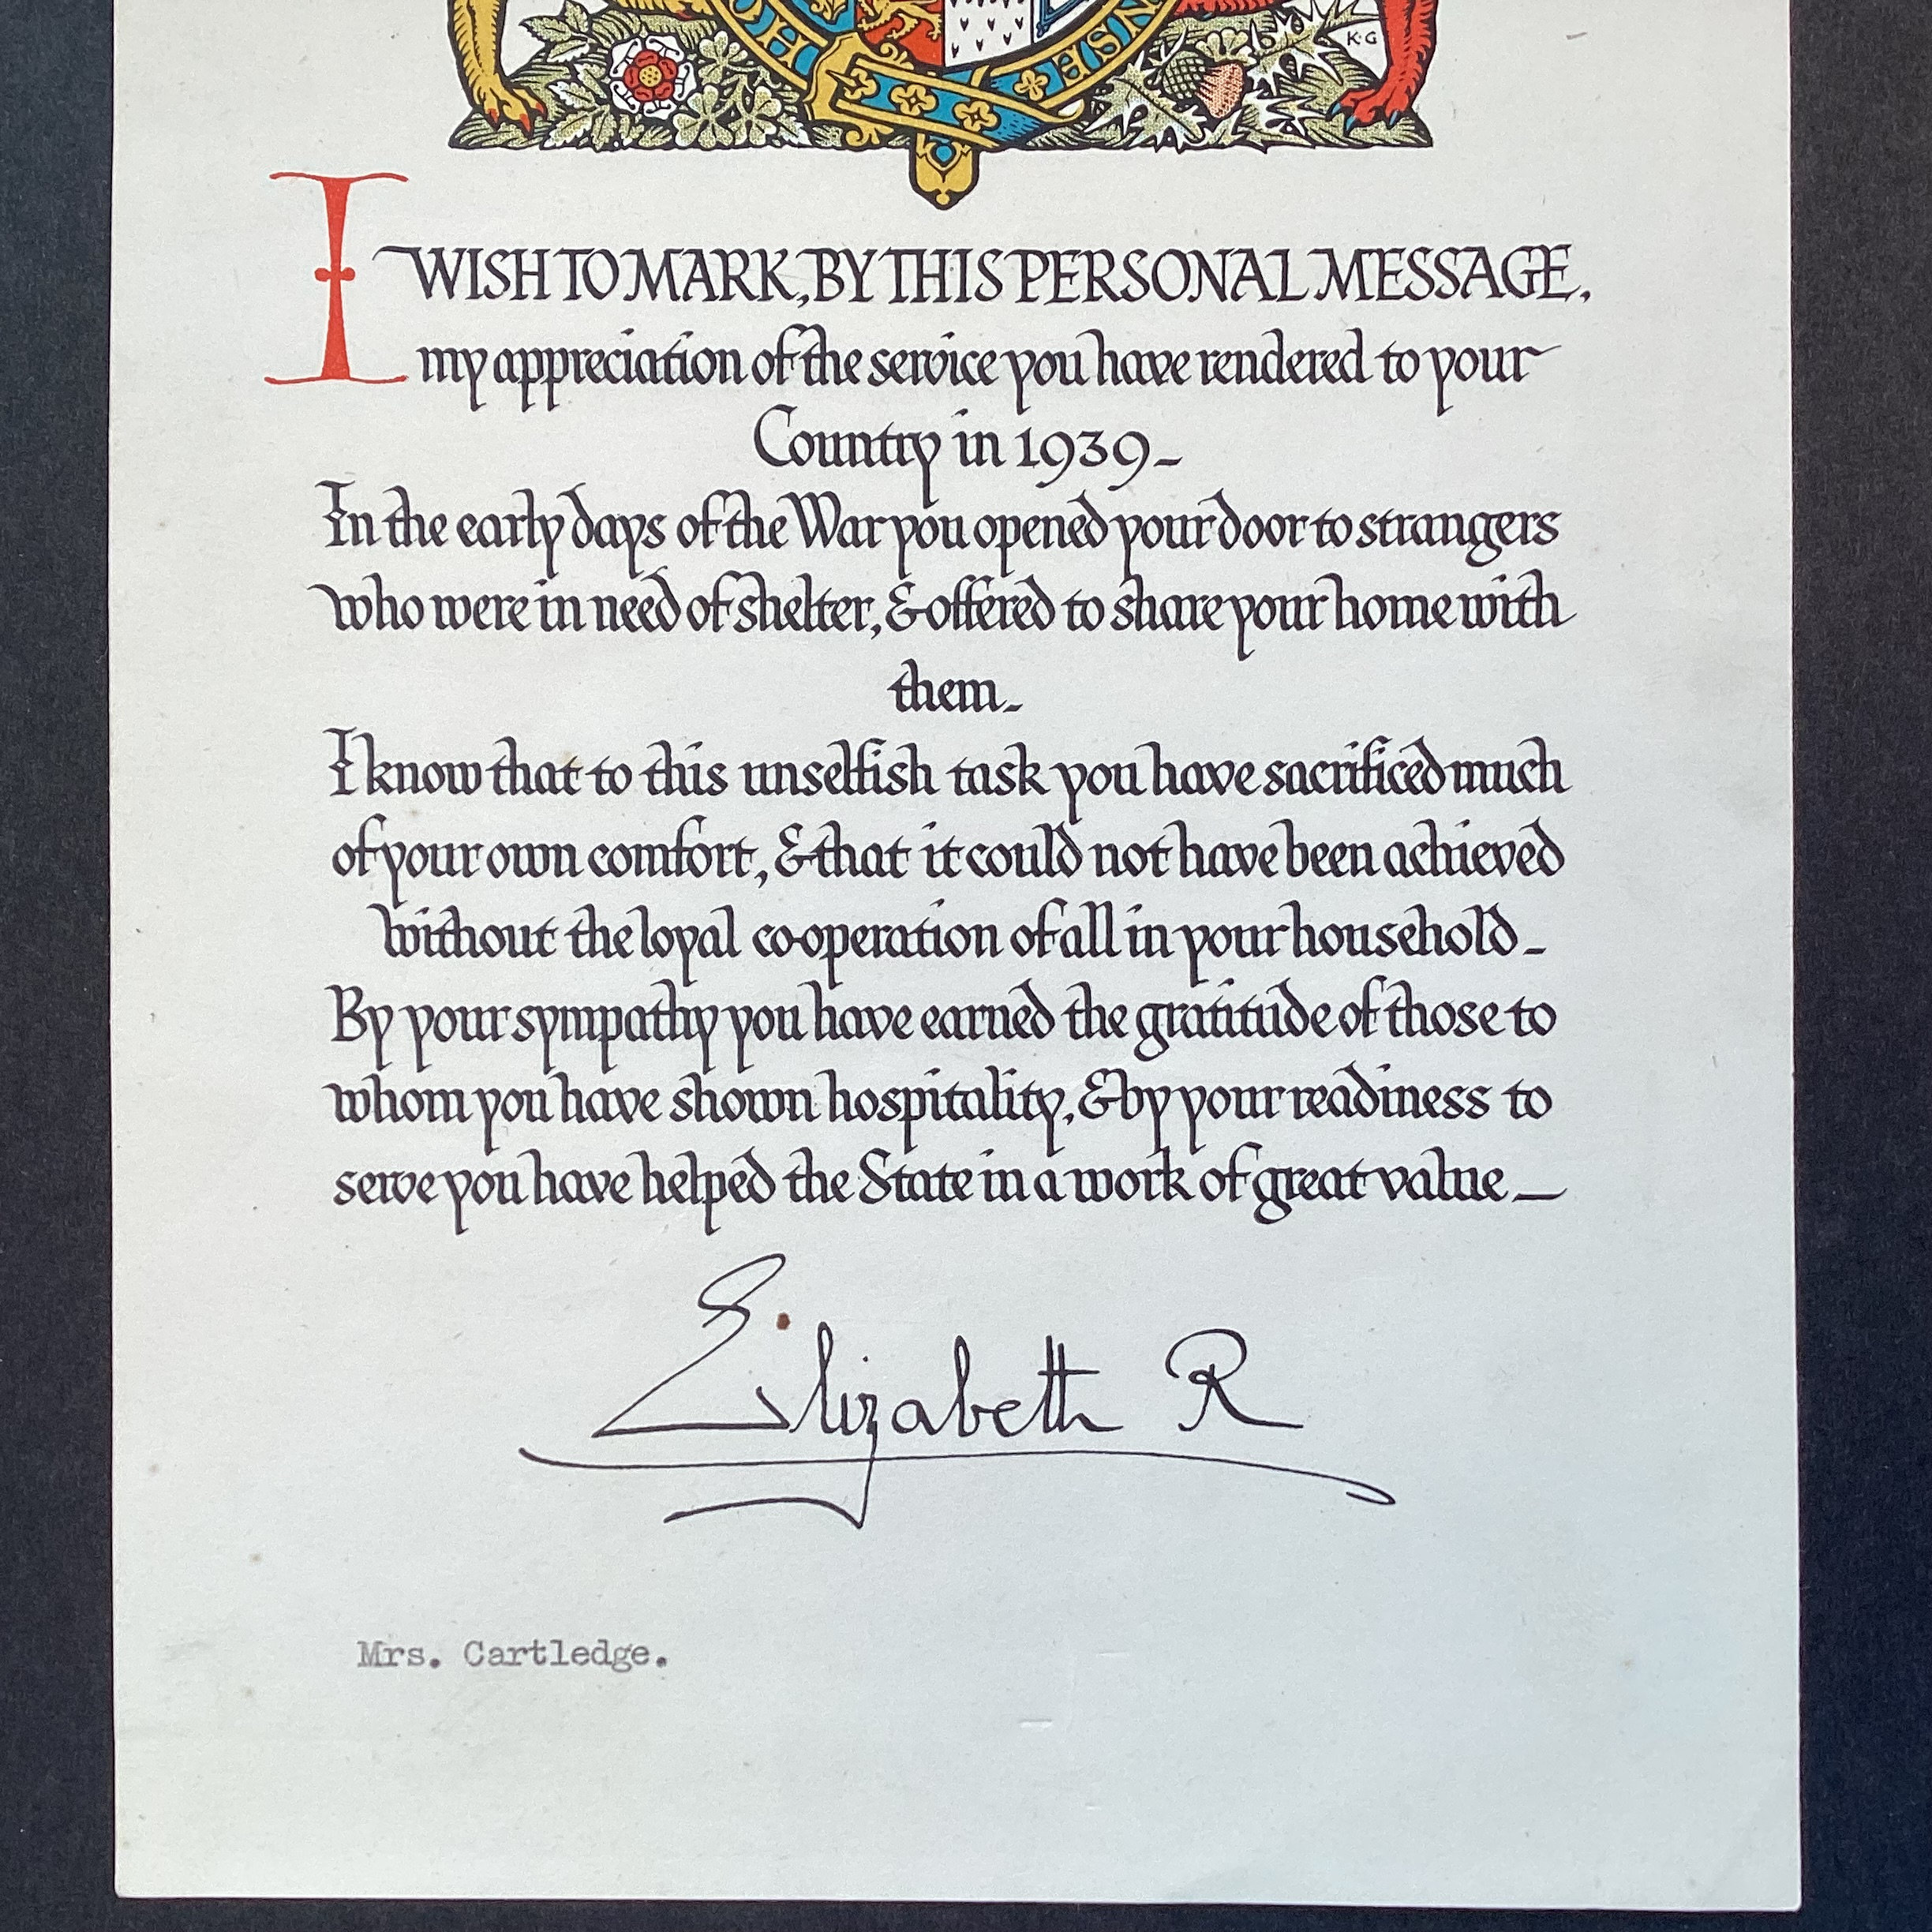 HO
ENSE
K·G
I WISH TO MARK, BY THIS PERSONAL MESSAGE,
my appreciation of the service you have rendered to your
Country in 1939_
In the early days of the War you opened your door to strangers
who were in need of shelter, & offered to share your home with
them_
I know that to this unselfish task you have sacrificed much
of your own comfort, & that it could not have been achieved
without the loyal co-operation of all in your household_
By your sympathy you have earned the gratitude of those to
whom you have shown hospitality, & by your readiness to
serve you have helped the State in a work of great value_
Elizabeth R
Mrs. Cartledge.